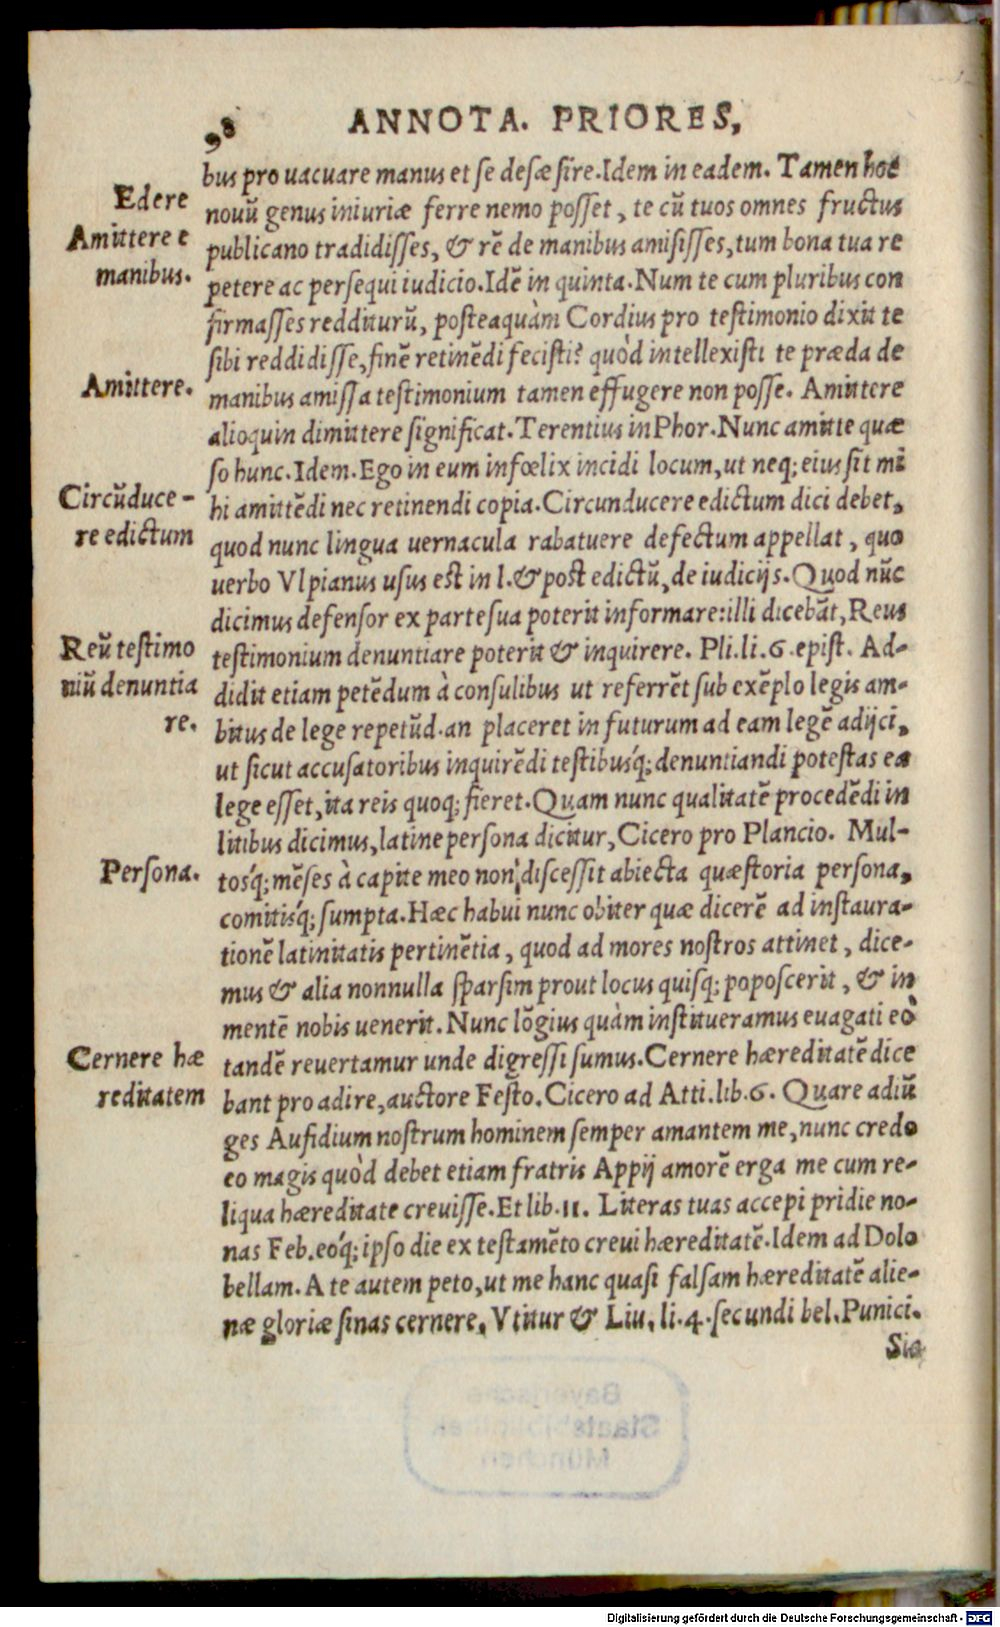 98 ANNOTA. PRIORES,
bus pro uacuare manus et se desæ sire. Idem in eadem. Tamen hoc
Edere
nouũ genus iniuriæ ferre nemo posset, te cũ tuos omnes fructus
Amittere e
publicano tradidisses, & rẽ de manibus amisisses, tum bona tua re
manibus.
petere ac persequi iudicio. Idẽ in quinta. Num te cum pluribus con
firmasses redditurũ, posteaquàm Cordius pro testimonio dixit te
sibi reddidisse, finẽ retinẽdi fecisti? quòd intellexisti te præda de
Amittere.
manibus amissa testimonium tamen effugere non posse. Amittere
alioquin dimittere significat. Terentius in Phor. Nunc amitte quæ
so hunc. Idem. Ego in eum infœlix incidi locum, ut neq; eius sit mi
Circũduce-
hi amittẽdi nec retinendi copia. Circunducere edictum dici debet,
re edictum
quod nunc lingua uernacula rabatuere defectum appellat, quo
uerbo Vlpianus usus est in l. & post edictũ, de iudicijs. Quod nũc
dicimus defensor ex parte sua poterit informare: illi dicebãt, Reus
Reũ testimo
testimonium denuntiare poterit & inquirere. Pli. li. 6. epist. Ad-
niũ denuntia
didit etiam petẽdum à consulibus ut referrẽt sub exẽplo legis am-
re.
bitus de lege repetũd. an placeret in futurum ad eam legẽ adijci,
ut sicut accusatoribus inquirẽdi testibusq́; denuntiandi potestas ea
lege esset, ita reis quoq; fieret. Quam nunc qualitatẽ procedẽdi in
litibus dicimus, latine persona dicitur, Cicero pro Plancio. Mul-
Persona.
tosq́; mẽses à capite meo non discessit abiecta quæstoria persona,
comitisq́; sumpta. Hæc habui nunc obiter quæ dicerẽ ad instaura-
tionẽ latinitatis pertinẽtia, quod ad mores nostros attinet, dice-
mus & alia nonnulla sparsim prout locus quisq; poposcerit, & in
mentẽ nobis uenerit. Nunc lõgius quàm institueramus euagati eò
Cernere hæ
tandẽ reuertamur unde digressi sumus. Cernere hæreditatẽ dice
reditatem
bant pro adire, auctore Festo. Cicero ad Atti. lib. 6. Quare adiũ
ges Aufidium nostrum hominem semper amantem me, nunc credo
eo magis quòd debet etiam fratris Appij amorẽ erga me cum re-
liqua hæreditate creuisse. Et lib. 11. Literas tuas accepi pridie no-
nas Feb. eoq́; ipso die ex testamẽto creui hæreditatẽ. Idem ad Dolo
bellam. A te autem peto, ut me hanc quasi falsam hæreditatẽ alie-
næ gloriæ sinas cernere. Vtitur & Liu. li. 4. secundi bel. Punici.
Sic
Bayerische
Staatsbibliothek
München
Digitalisierung gefördert durch die Deutsche Forschungsgemeinschaft - DFG